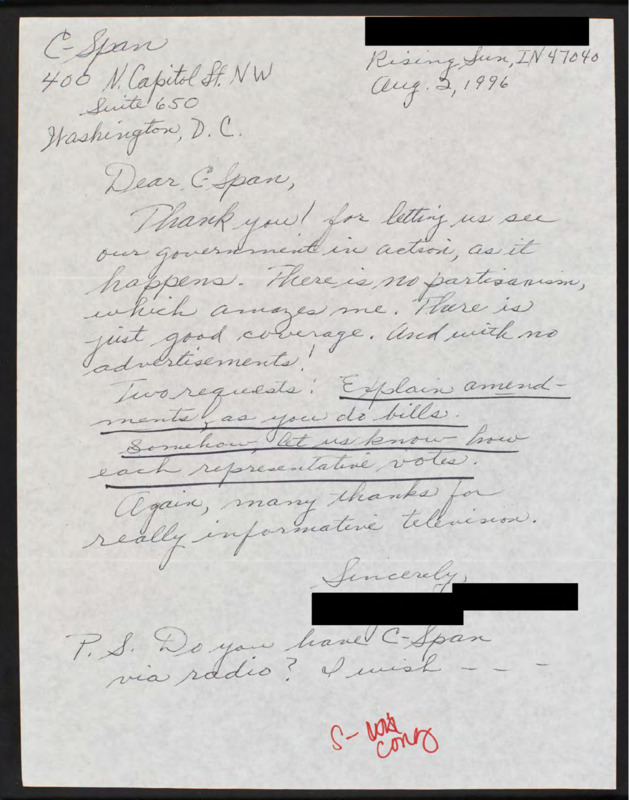 C-Span
400 N. Capitol St. NW
Suite 650
Washington, D. C.
Rising Sun, IN 47040
Aug. 2, 1996
Dear C-Span,
Thank you! for letting us see
our government in action, as it
happens. There is no partisanism,
which amazes me. There is
just good coverage. And with no
advertisements!
Two requests: Explain amend-
ments, as you do bills.
Somehow, let us know how
each representative votes.
Again, many thanks for
really informative television.
Sincerely,
P. S. Do you have C-Span
via radio? I wish - - -
S-